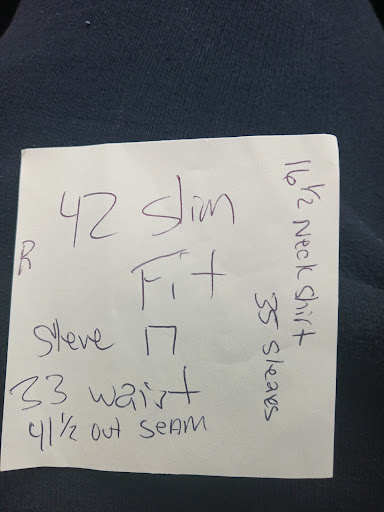 42 Slim
R
Fit
Sleve
33 waist
41 1/2 out SEAM
16 1/2 Neck Shirt
35 Sleaves